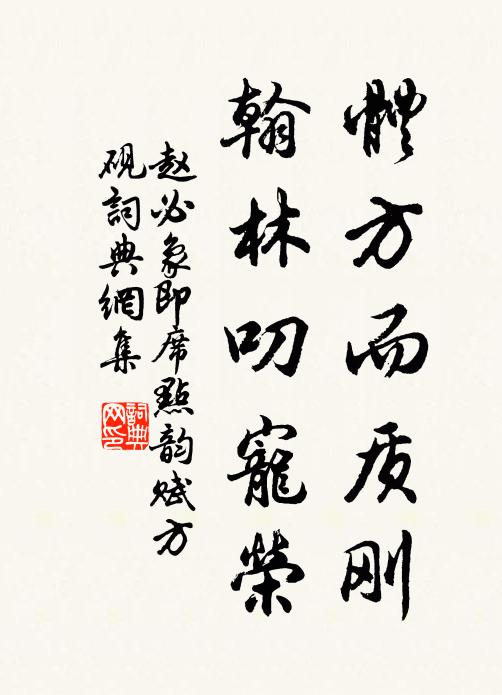 體方而质刚
翰林叨寵榮
赵必象即席點韵赋方
砚詞典網集
詞典
网印